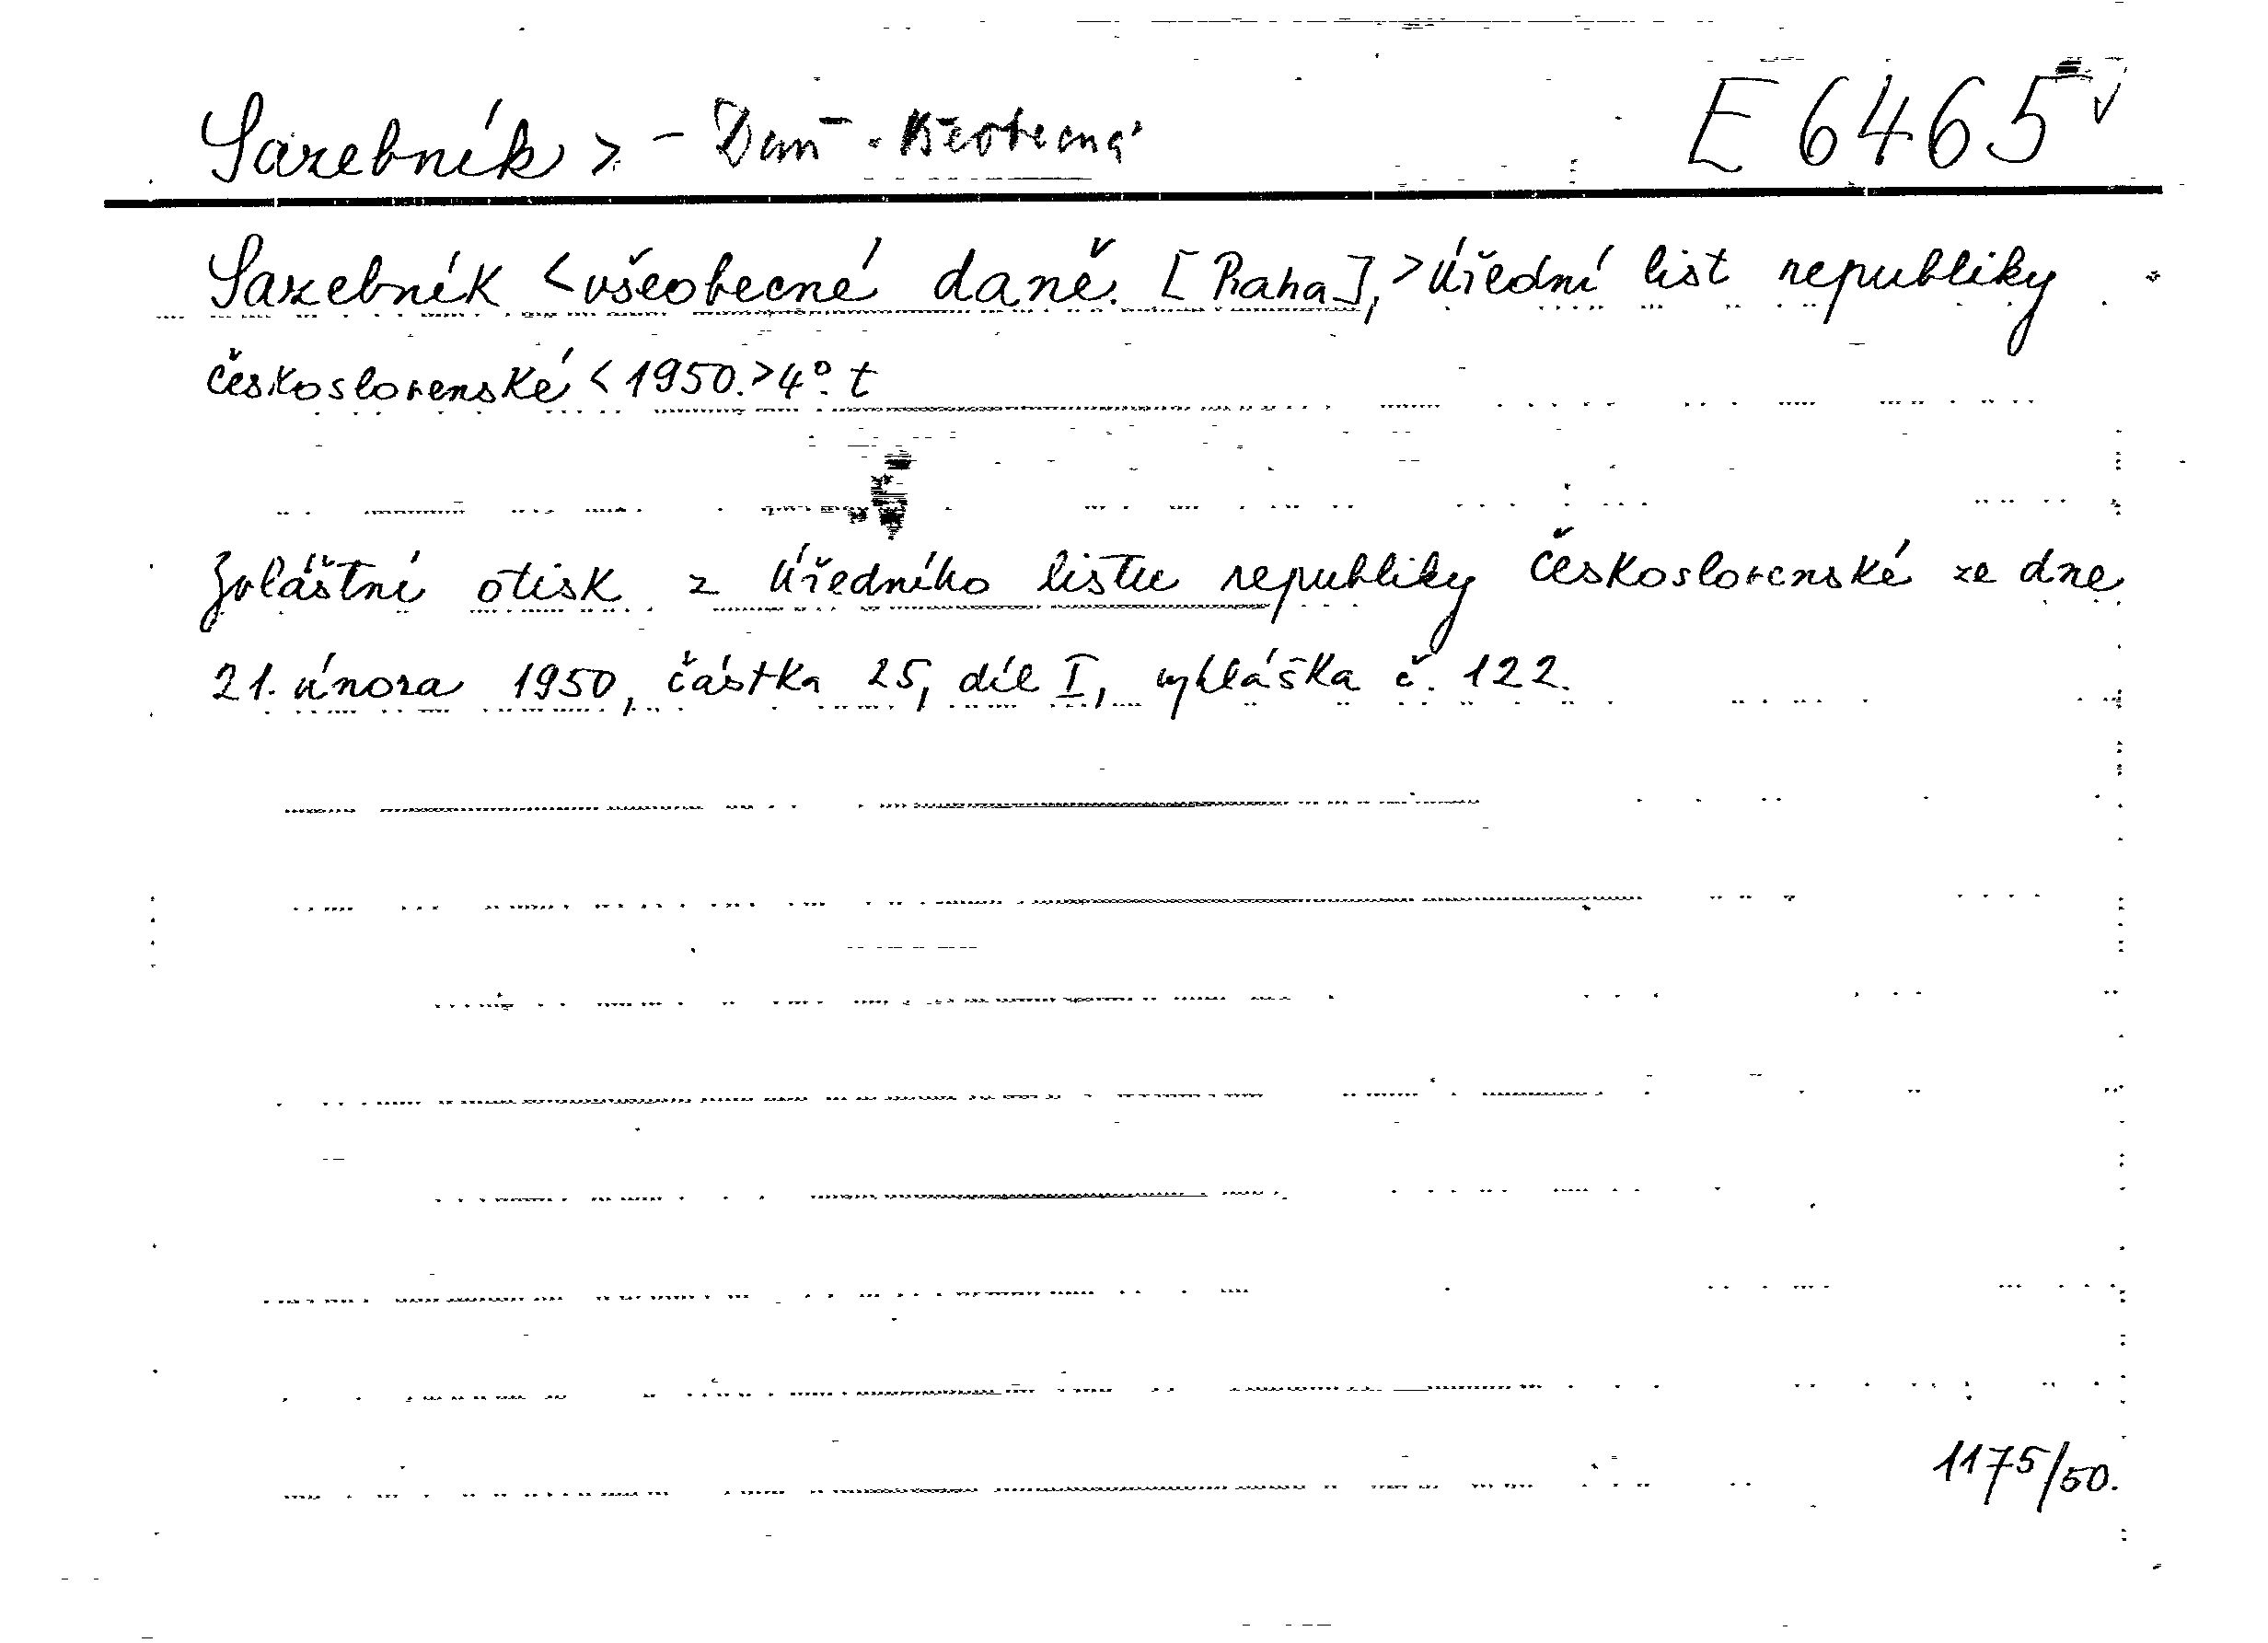 Sazebník > - Daň - všeobecná E 6465
Sazebník < všeobecné daně. [Praha], > Úřední list republiky
československé < 1950. > 4°. t
Zvláštní otisk z Úředního listu republiky Československé ze dne
21. února 1950, částka 25, díl I, vyhláška č. 122.
1175/50.